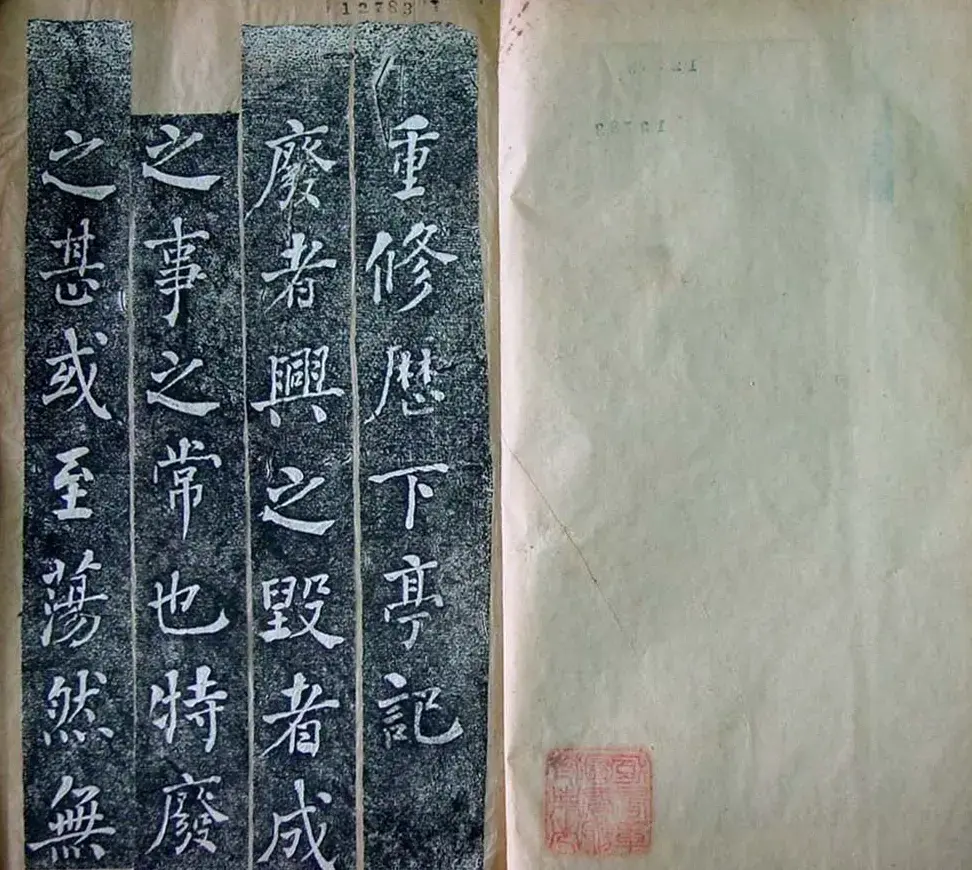 12783
重修歴下亭記
廢者興之毀者成
之事之常也特廢
之甚或至蕩然無